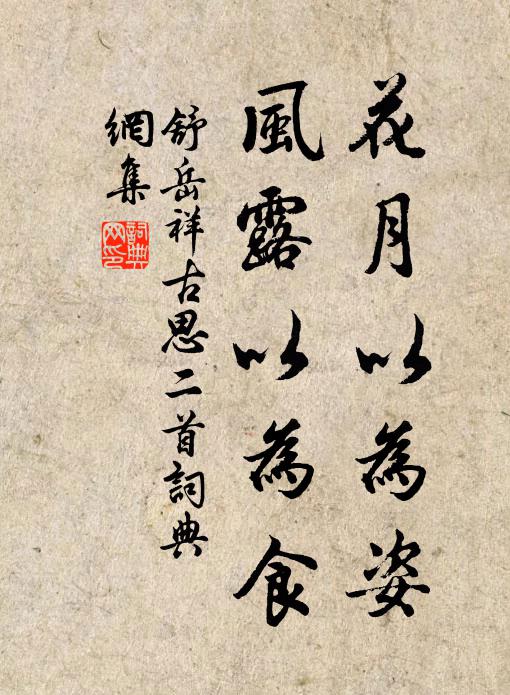 花月以為姿
風露以為食
舒岳祥古思二首詞典
網集
詞典
网印